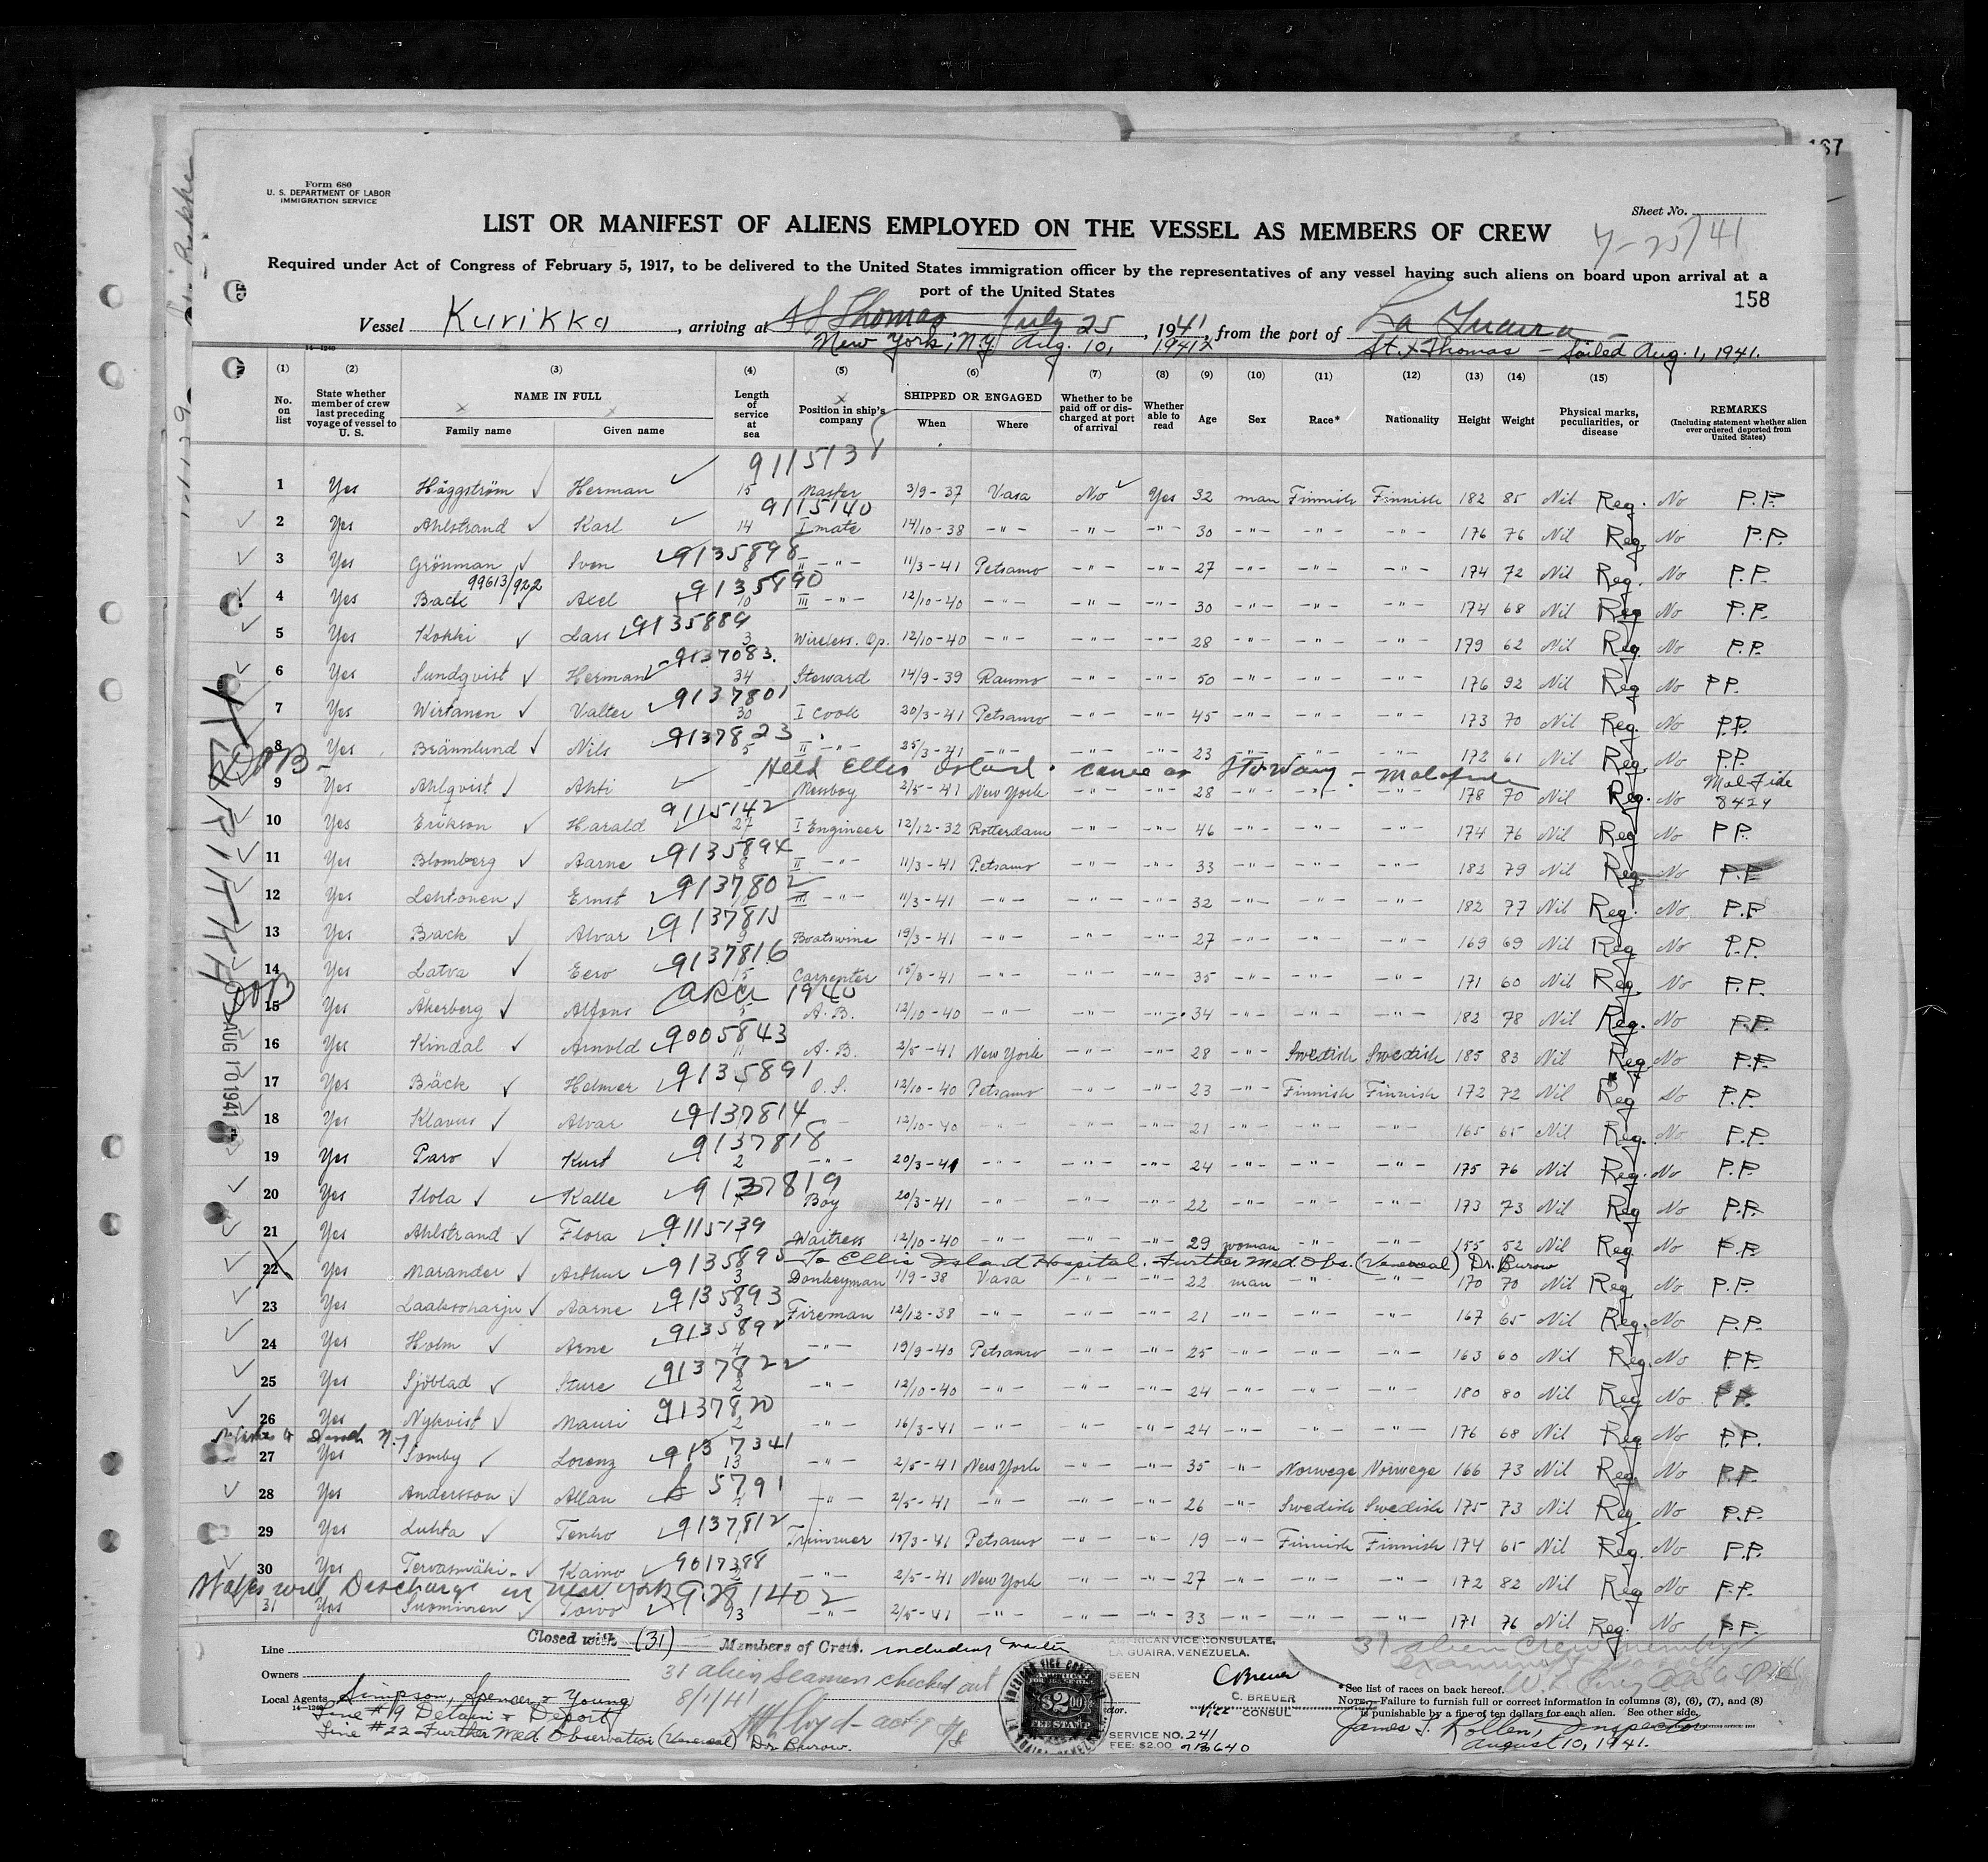 167
Form 680
U. S. DEPARTMENT OF LABOR
IMMIGRATION SERVICE
Sheet No.
LIST OR MANIFEST OF ALIENS EMPLOYED ON THE VESSEL AS MEMBERS OF CREW
7-25/41
Required under Act of Congress of February 5, 1917, to be delivered to the United States immigration officer by the representatives of any vessel having such aliens on board upon arrival at a
port of the United States
158
Vessel Kurikka, arriving at St Thomas July 25, 1941, from the port of La Guaira
New York, N.Y. Aug. 10, 1941 St. Thomas - Sailed Aug. 1, 1941.
14-1240
(1) (2) (3) (4) (5) (6) (7) (8) (9) (10) (11) (12) (13) (14) (15)
No. on list State whether member of crew last preceding voyage of vessel to U. S. NAME IN FULL Family name Given name Length of service at sea Position in ship's company SHIPPED OR ENGAGED When Where Whether to be paid off or discharged at port of arrival Whether able to read Age Sex Race* Nationality Height Weight Physical marks, peculiarities, or disease REMARKS (Including statement whether alien ever ordered deported from United States)
9115138
1 Yes Häggström Herman 15 Master 3/9-37 Vasa No Yes 32 man Finnish Finnish 182 85 Nil Reg. No P.P.
9115140
2 Yes Ahlstrand Karl 14 I mate 14/10-38 -"- -"- -"- 30 -"- -"- -"- 176 76 Nil Reg. No P.P.
9135898
3 Yes Grönman Sven 8 II -"- 11/3-41 Petsamo -"- -"- 27 -"- -"- -"- 174 72 Nil Reg. No P.P.
99613/922 9135890
4 Yes Back Axel 10 III -"- 12/10-40 -"- -"- -"- 30 -"- -"- -"- 174 68 Nil Reg No P.P.
9135889
5 Yes Kokki Lars 3 Wireless. Op. 12/10-40 -"- -"- -"- 28 -"- -"- -"- 179 62 Nil Reg. No P.P.
9137083
6 Yes Sundqvist Herman 34 Steward 14/9-39 Raumo -"- -"- 50 -"- -"- -"- 176 92 Nil Reg No P.P.
9137801
7 Yes Wirtanen Valter 30 I Cook 20/3-41 Petsamo -"- -"- 45 -"- -"- -"- 173 70 Nil Reg. No P.P.
9137823
8 Yes Brännlund Nils 5 II -"- 25/3-41 -"- -"- -"- 23 -"- -"- -"- 172 61 Nil Reg. No P.P.
Held Ellis Island. came as Stoway - Malafide
9 Yes Ahlqvist Ahti - Messboy 2/5-41 New York -"- -"- 28 -"- -"- -"- 178 70 Nil Reg. No Mal Fide 8424
9115142
10 Yes Erikson Harald 27 I Engineer 12/12-32 Rotterdam -"- -"- 46 -"- -"- -"- 174 76 Nil Reg No P.P.
9135894
11 Yes Blomberg Aarne 8 II -"- 11/3-41 Petsamo -"- -"- 33 -"- -"- -"- 182 79 Nil Reg. No P.P.
9137802
12 Yes Lehtonen Ernst III -"- 11/3-41 -"- -"- -"- 32 -"- -"- -"- 182 77 Nil Reg. No P.P.
9137815
13 Yes Back Alvar 9 Boatswine 19/3-41 -"- -"- -"- 27 -"- -"- -"- 169 69 Nil Reg No P.P.
9137816
14 Yes Latva Eero 15 Carpenter 15/3-41 -"- -"- -"- 35 -"- -"- -"- 171 60 Nil Reg. No P.P.
1940
15 Yes Åkerberg Alfons 5 A.B. 12/10-40 -"- -"- -"- 34 -"- -"- -"- 182 78 Nil Reg. No P.P.
9005843
16 Yes Kindal Arnold 11 A.B. 2/5-41 New York -"- -"- 28 -"- Swedish Swedish 185 83 Nil Reg. No P.P.
9135891
17 Yes Bäck Holmer O.S. 12/10-40 Petsamo -"- -"- 23 -"- Finnish Finnish 172 72 Nil Reg No P.P.
9137814
18 Yes Klavus Alvar -"- 12/10-40 -"- -"- -"- 21 -"- -"- -"- 165 65 Nil Reg. No P.P.
9137818
19 Yes Paro Kurt 2 -"- 20/3-41 -"- -"- -"- 24 -"- -"- -"- 175 76 Nil Reg. No P.P.
9137819
20 Yes Ilola Kalle Boy 20/3-41 -"- -"- -"- 22 -"- -"- -"- 173 73 Nil Reg No P.P.
9115139
21 Yes Ahlstrand Flora Waitress 12/10-40 -"- -"- -"- 29 woman -"- -"- 155 52 Nil Reg No P.P.
9135895 To Ellis Island Hospital. Further Med. Obs. (Venereal) Dr. Burow
22 Yes Marander Arthur 3 Donkeyman 1/9-38 Vasa -"- -"- 22 man -"- -"- 170 70 Nil Reg No P.P.
9135893
23 Yes Laaksoharju Aarne 3 Fireman 12/12-38 -"- -"- -"- 21 -"- -"- -"- 167 65 Nil Reg. No P.P.
9135892
24 Yes Holm Arne 4 -"- 19/9-40 Petsamo -"- -"- 25 -"- -"- -"- 163 60 Nil Reg. No P.P.
9137822
25 Yes Sjöblad Sture 2 -"- 12/10-40 -"- -"- -"- 24 -"- -"- -"- 180 80 Nil Reg No P.P.
9137820
26 Yes Nykvist Mauri 2 -"- 16/3-41 -"- -"- -"- 24 -"- -"- -"- 176 68 Nil Reg. No P.P.
9137341
27 Yes Somby Lorenz 13 -"- 2/5-41 New York -"- -"- 35 -"- Norwege Norwege 166 73 Nil Reg. No P.P.
5791
28 Yes Andersson Allan -"- 2/5-41 -"- -"- -"- 26 -"- Swedish Swedish 175 73 Nil Reg No P.P.
9137812
29 Yes Luhta Tenho Trimmer 15/3-41 Petsamo -"- -"- 19 -"- Finnish Finnish 174 65 Nil Reg. No P.P.
9017388
30 Yes Tervasmäki Kaino -"- 2/5-41 New York -"- -"- 27 -"- -"- -"- 172 82 Nil Reg No P.P.
will Discharge in New York 9281402
31 Yes Suominen Toivo 13 -"- 2/5-41 -"- -"- -"- 33 -"- -"- -"- 171 76 Nil Reg. No P.P.
AUG 10 1941
Closed with (31) Members of Crew. including master
Line
Owners
31 alien Seamen checked out
8/1/41
Local Agents Simpson, Spence & Young
14-1240
Line #9 Detain & Deport
Line #22 Further Med Observation (Venereal) Dr. Burow.
AMERICAN VICE CONSULATE,
LA GUAIRA, VENEZUELA.
SEEN
C Breuer
C. BREUER
Vice CONSUL
AMERICAN
$2.00
FEE STAMP
SERVICE NO. 241
FEE: $2.00
31 alien Crew members
examined
*See list of races on back hereof.
NOTE.—Failure to furnish full or correct information in columns (3), (6), (7), and (8)
is punishable by a fine of ten dollars for each alien. See other side.
James J. Kollen, Inspector
August 10, 1941.